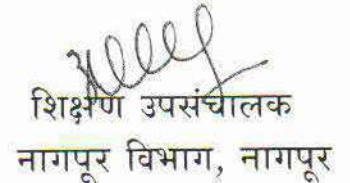 शिक्षण उपसंचालक
नागपूर विभाग, नागपूर